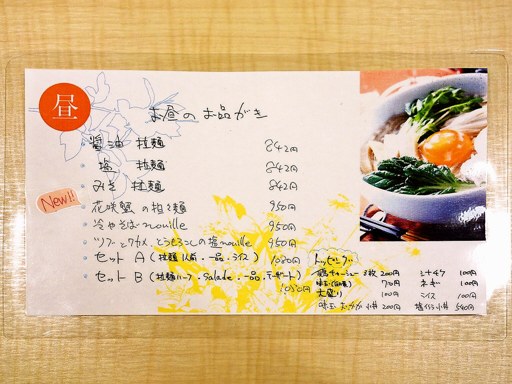 昼
お昼のお品がき
醤油 拉麺 842円
塩 拉麺 842円
みそ 拉麺 842円
New!! 花咲蟹の担々麺 950円
冷やそばnouille 950円
ツブとワカメ、とうもろこしの塩nouille 950円
セット A (拉麺1人前・一品・ライス) 1080円
セット B (拉麺ハーフ・Salade・一品・デザート) 1080円
トッピング
鶏チャーシュー 3枚 200円
味玉 70円
大盛り 100円
味玉 おかか小丼 200円
シナチク 100円
ネギ 100円
ライス 100円
塩イクラ小丼 540円